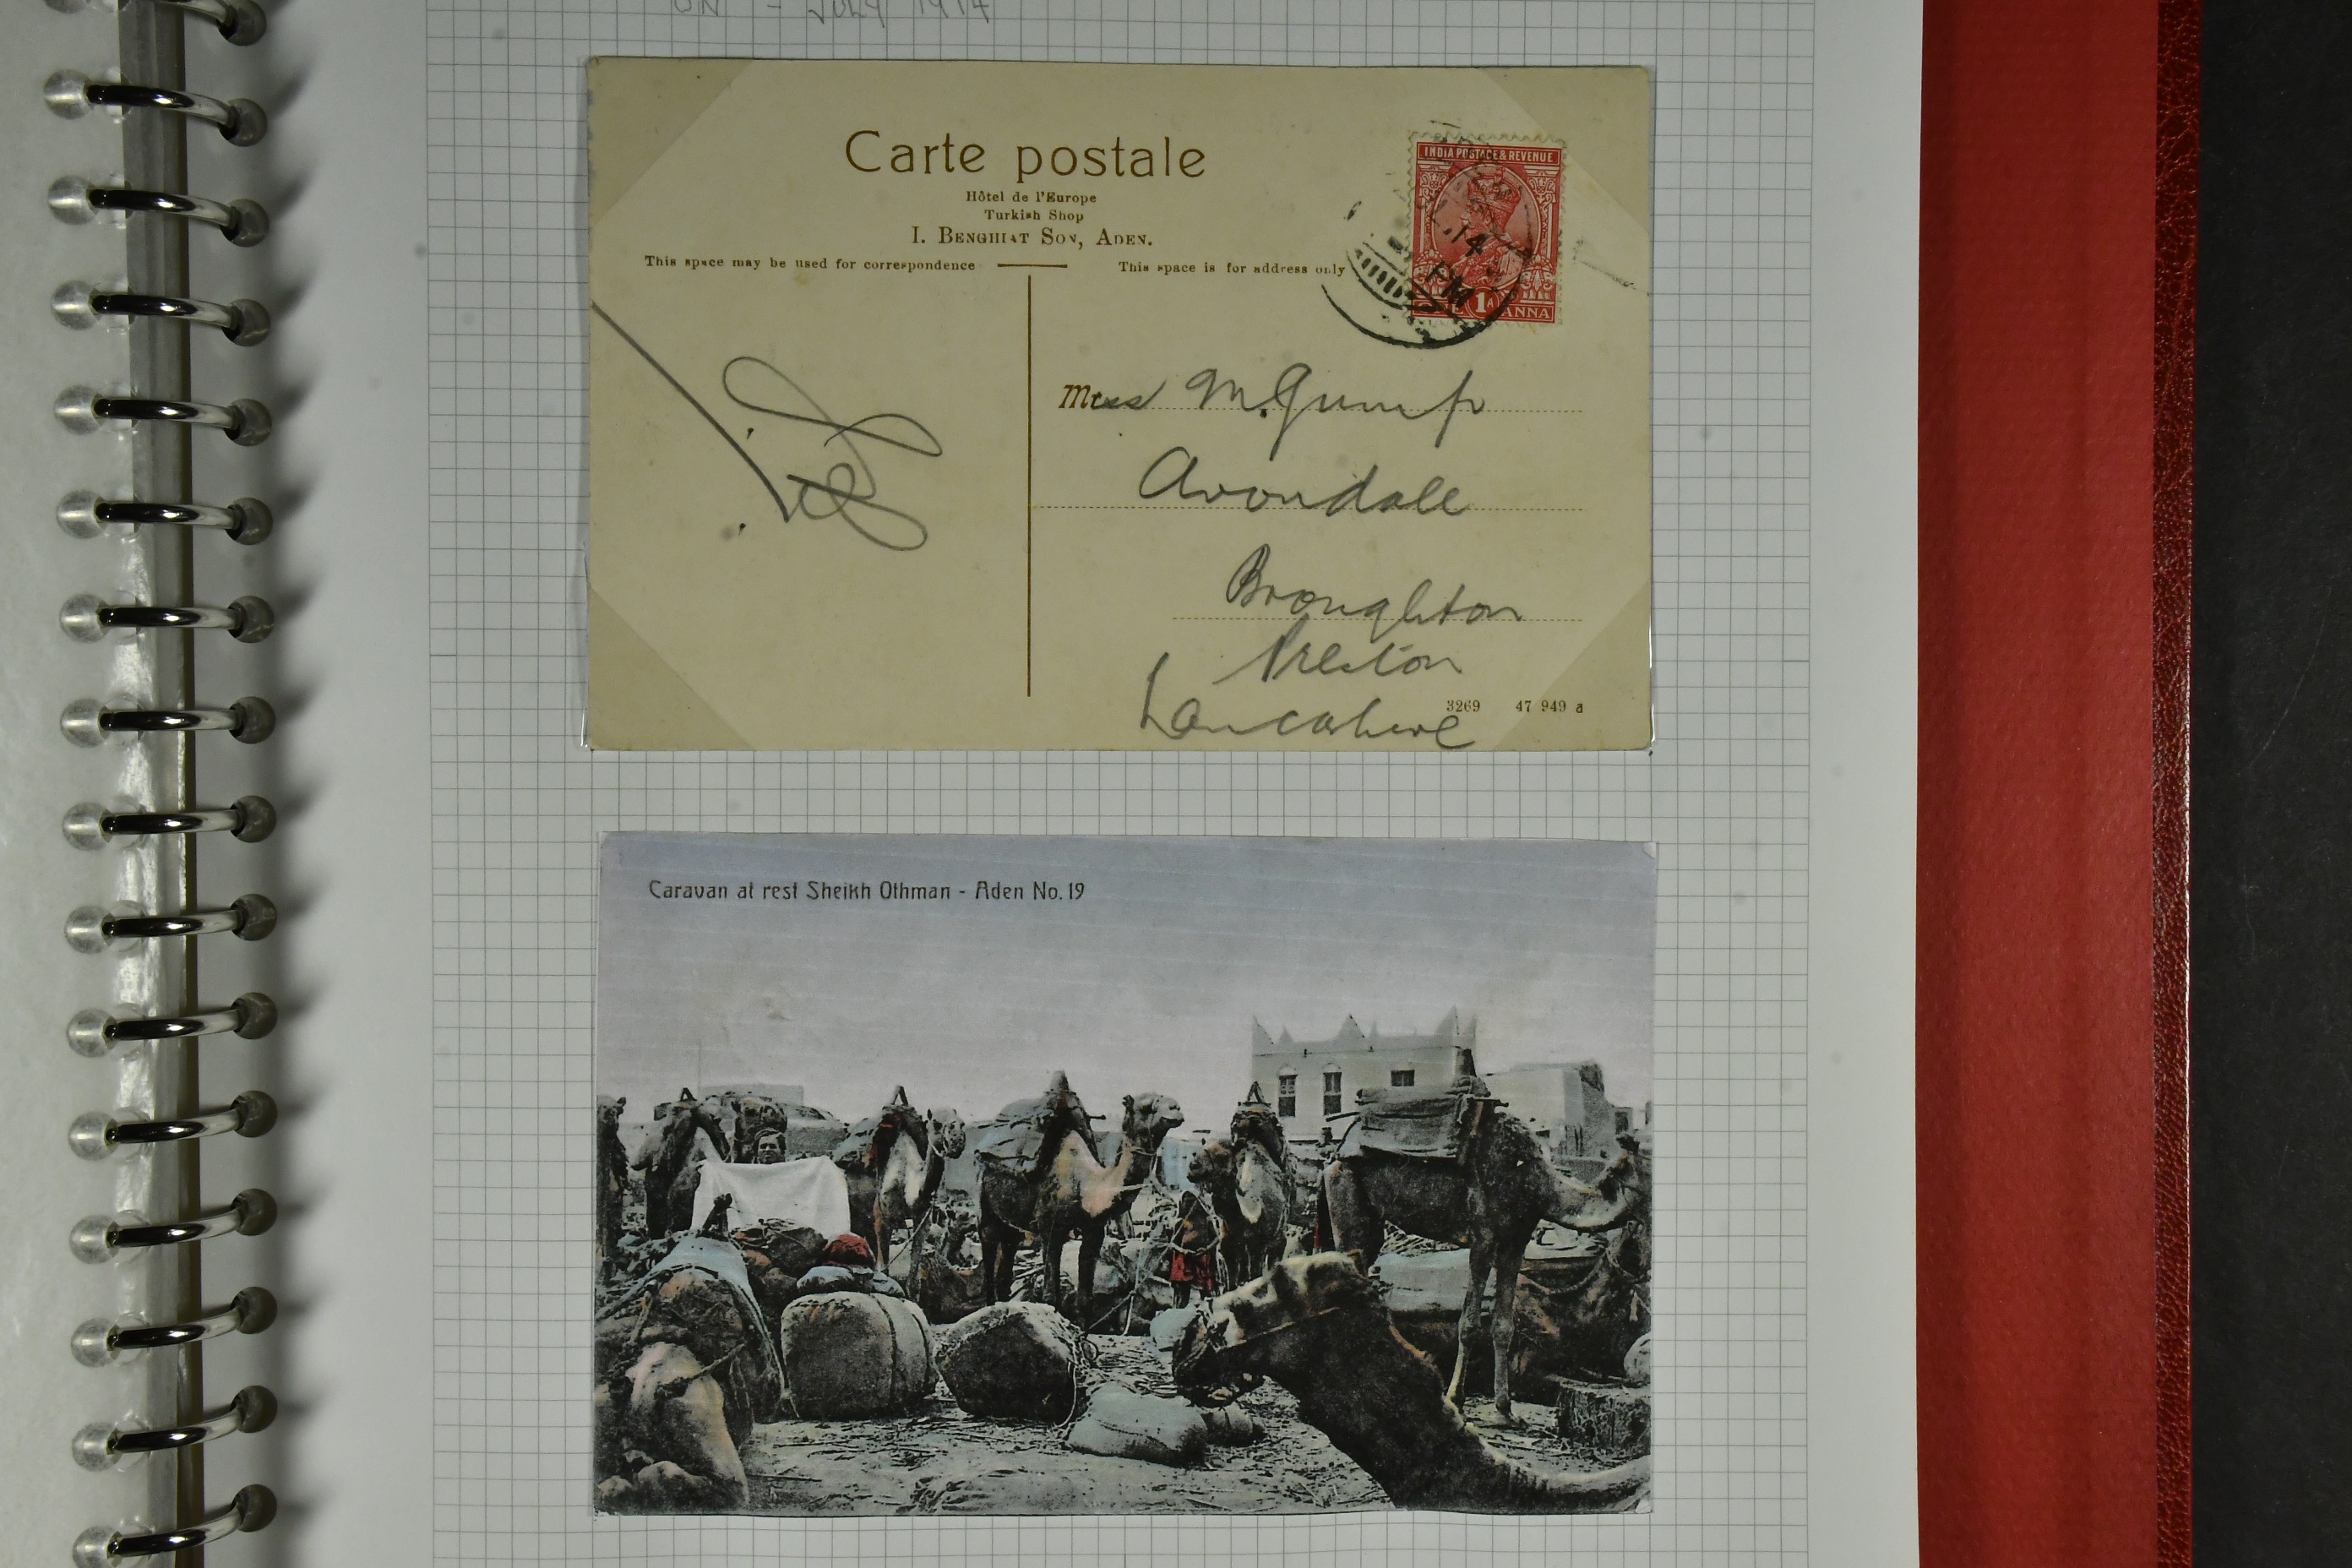 - JULY 1914
Carte postale
Hôtel de l'Europe
Turkish Shop
I. BENGHIAT SON, ADEN.
This space may be used for correspondence
This space is for address only
INDIA POSTAGE & REVENUE
14
PM
1A
ANNA
Miss M. Gump
Avondale
Broughton
Preston
Lancashire
3269 47 949 a
Caravan at rest Sheikh Othman - Aden No. 19